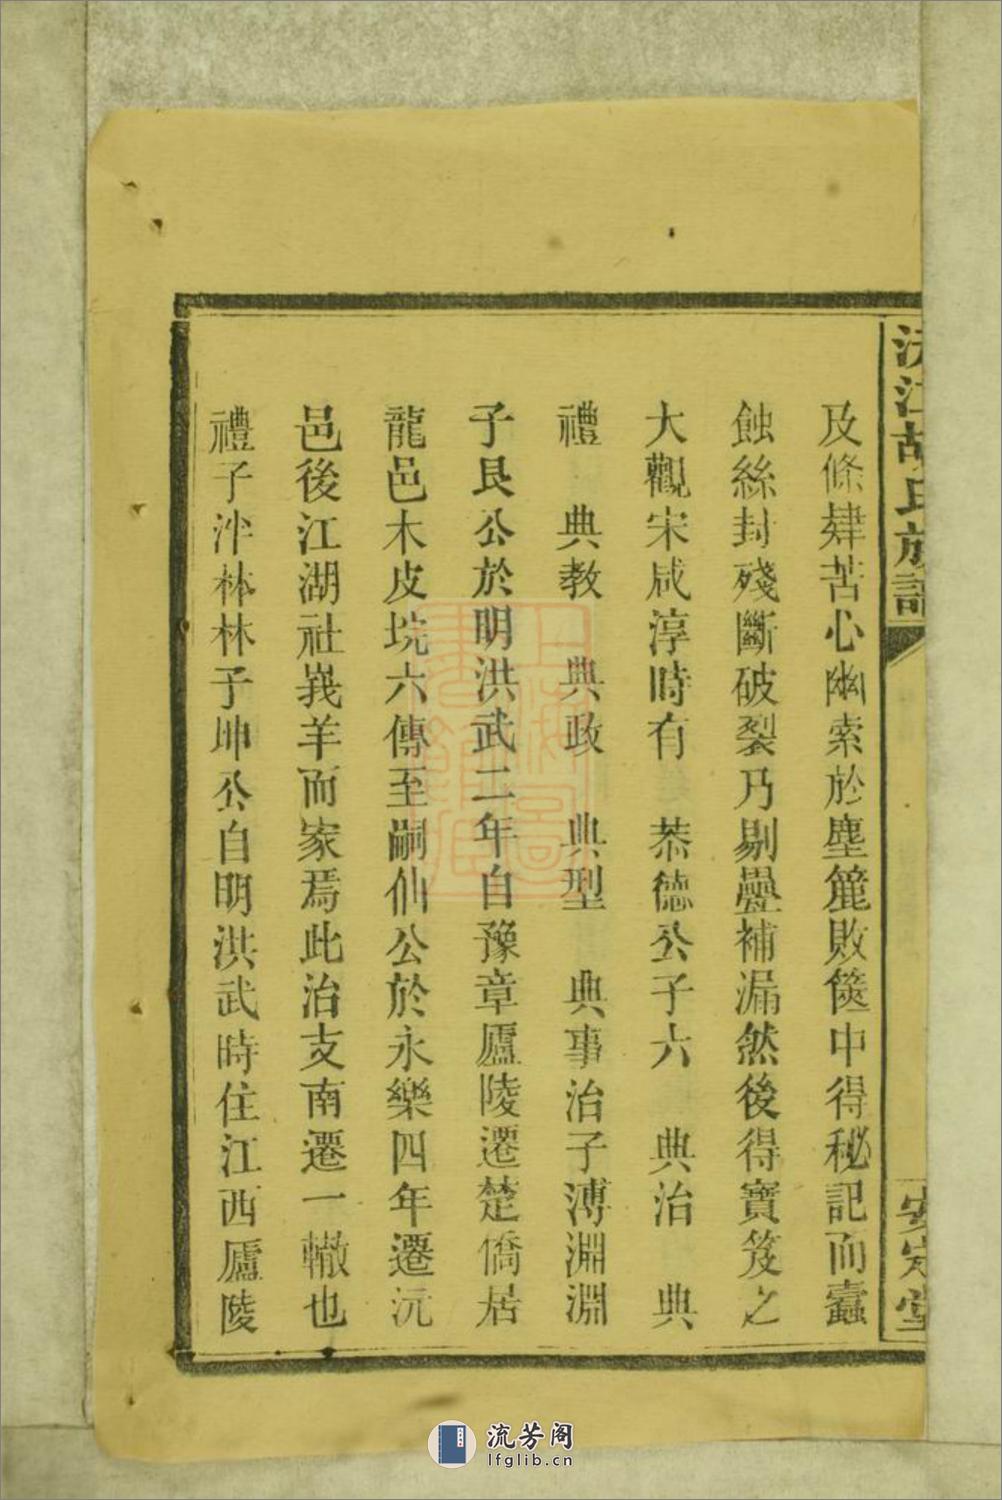 沅江胡氏族譜
安定堂
及條肄苦心幽索於塵簏敗篋中得秘記而蠹
蝕絲封殘斷破裂乃剔疊補漏然後得寶笈之
大觀宋咸淳時有 恭德公子六 典治 典
禮 典教 典政 典型 典事治子溥淵淵
子艮公於明洪武二年自豫章廬陵遷楚僑居
龍邑木皮垸六傳至嗣仙公於永樂四年遷沅
邑後江湖社峩羊而家焉此治支南遷一轍也
禮子沖林林子坤公自明洪武時住江西廬陵
上海圖書館藏
流芳阁
lfglib.cn